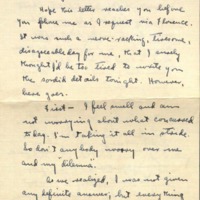 Hope this letter reaches you before
you phone me as I request via Florence.
It was such a nerve-racking, tiresome,
disagreeable day for me, that I surely
thought I'd be too tired to write you
the sordid details tonight. However,
here goes.
First — I feel swell and am
not worrying about what
to key. I'm taking it all in stride
so don't anybody worry over me
and my "dilemma".
As we realized, I was not given
any definite answer, but everything